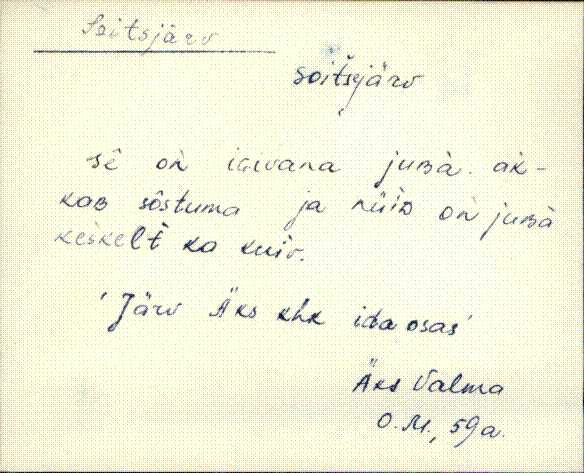 Soitsjärv
soitšejärv
sê on iɢivana juʙà. ak-
kaʙ sôstuma ja nüiᴅ on juʙà
keskelt ka kuiv.
'Järv Äks khk ida osas'
Äks Valma
O. M., 59 a.